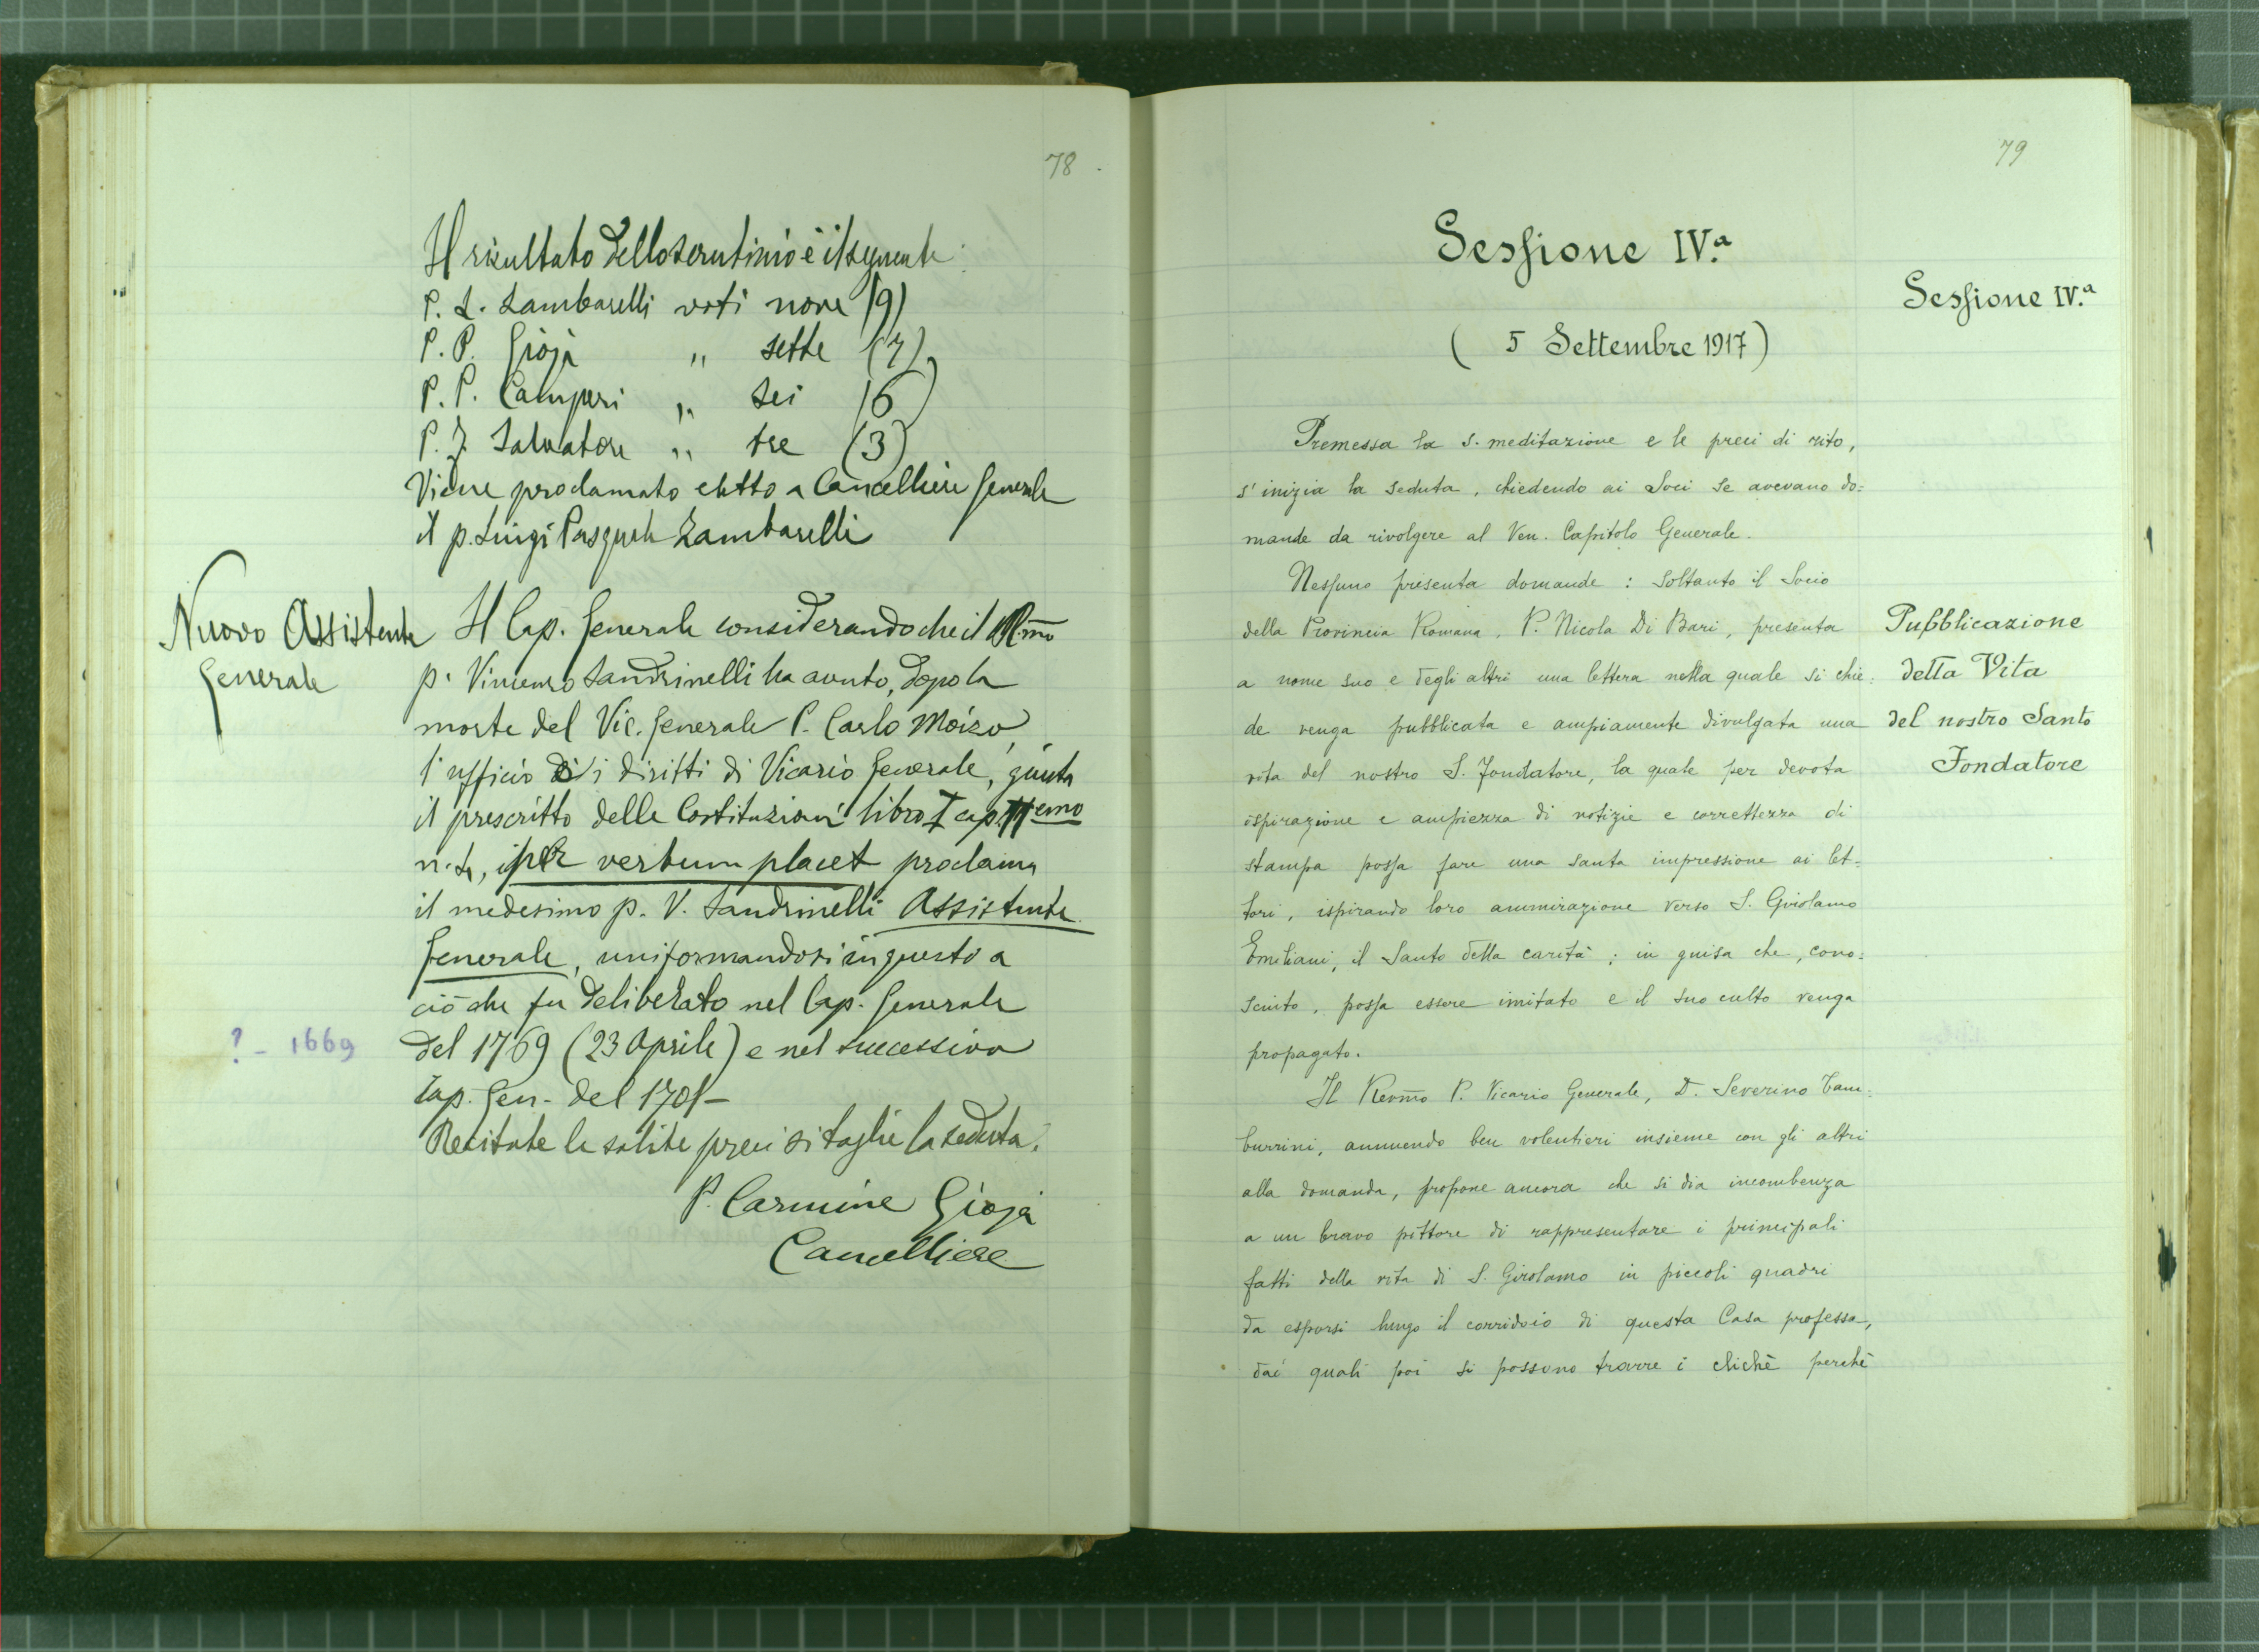 78
Il risultato dello scrutinio è il seguente:
P. L. Zambarelli voti nove (9)
P. P. Gioja " sette (7)
P. P. Camperi " sei (6)
P. J. Salvatore " tre (3)
Viene proclamato eletto a Cancelliere Generale
il p. Luigi Pasquale Zambarelli
Nuovo Assistente
Generale
Il Cap. Generale considerando che il Rmo
p. Vincenzo Sandrinelli ha avuto, dopo la
morte del Vic. Generale P. Carlo Moizo,
l'ufficio i diritti di Vicario Generale, giusta
il prescritto delle Costituzioni libro I cap.
per verbum placet proclama
il medesimo p. V. Sandrinelli Assistente
Generale, uniformandosi in questo a
ciò che fu deliberato nel Cap. Generale
? - 1669
del 1769 (23 Aprile) e nel successivo
Cap. Gen. del 1701-
Recitate le solite preci si toglie la seduta.
P. Carmine Gioja
Cancelliere
79
Sessione IV.a
Sessione IV.a
( 5 Settembre 1917)
Premessa la s. meditazione e le preci di rito,
s'inizia la seduta, chiedendo ai Soci se avevano do=
mande da rivolgere al Ven. Capitolo Generale.
Nessuno presenta domande : soltanto il Socio
della Provincia Romana, P. Nicola Di Bari, presenta
a nome suo e degli altri una lettera nella quale si chie=
de venga pubblicata e ampiamente divulgata una
vita del nostro S. Fondatore, la quale per devota
ispirazione e ampiezza di notizie e correttezza di
stampa possa fare una santa impressione ai let=
tori, ispirando loro ammirazione verso S. Girolamo
Emiliani, il Santo della carità ; in guisa che, cono=
sciuto, possa essere imitato e il suo culto venga
propagato.
Pubblicazione
della Vita
del nostro Santo
Fondatore
Il Revmo P. Vicario Generale, D. Severino Tam=
burrini, annuendo ben volentieri insieme con gli altri
alla domanda, propone ancora che si dia incombenza
a un bravo pittore di rappresentare i principali
fatti della vita di S. Girolamo in piccoli quadri
da esporsi lungo il corridoio di questa Casa professa,
dai quali poi si possono trarre i clichè perchè